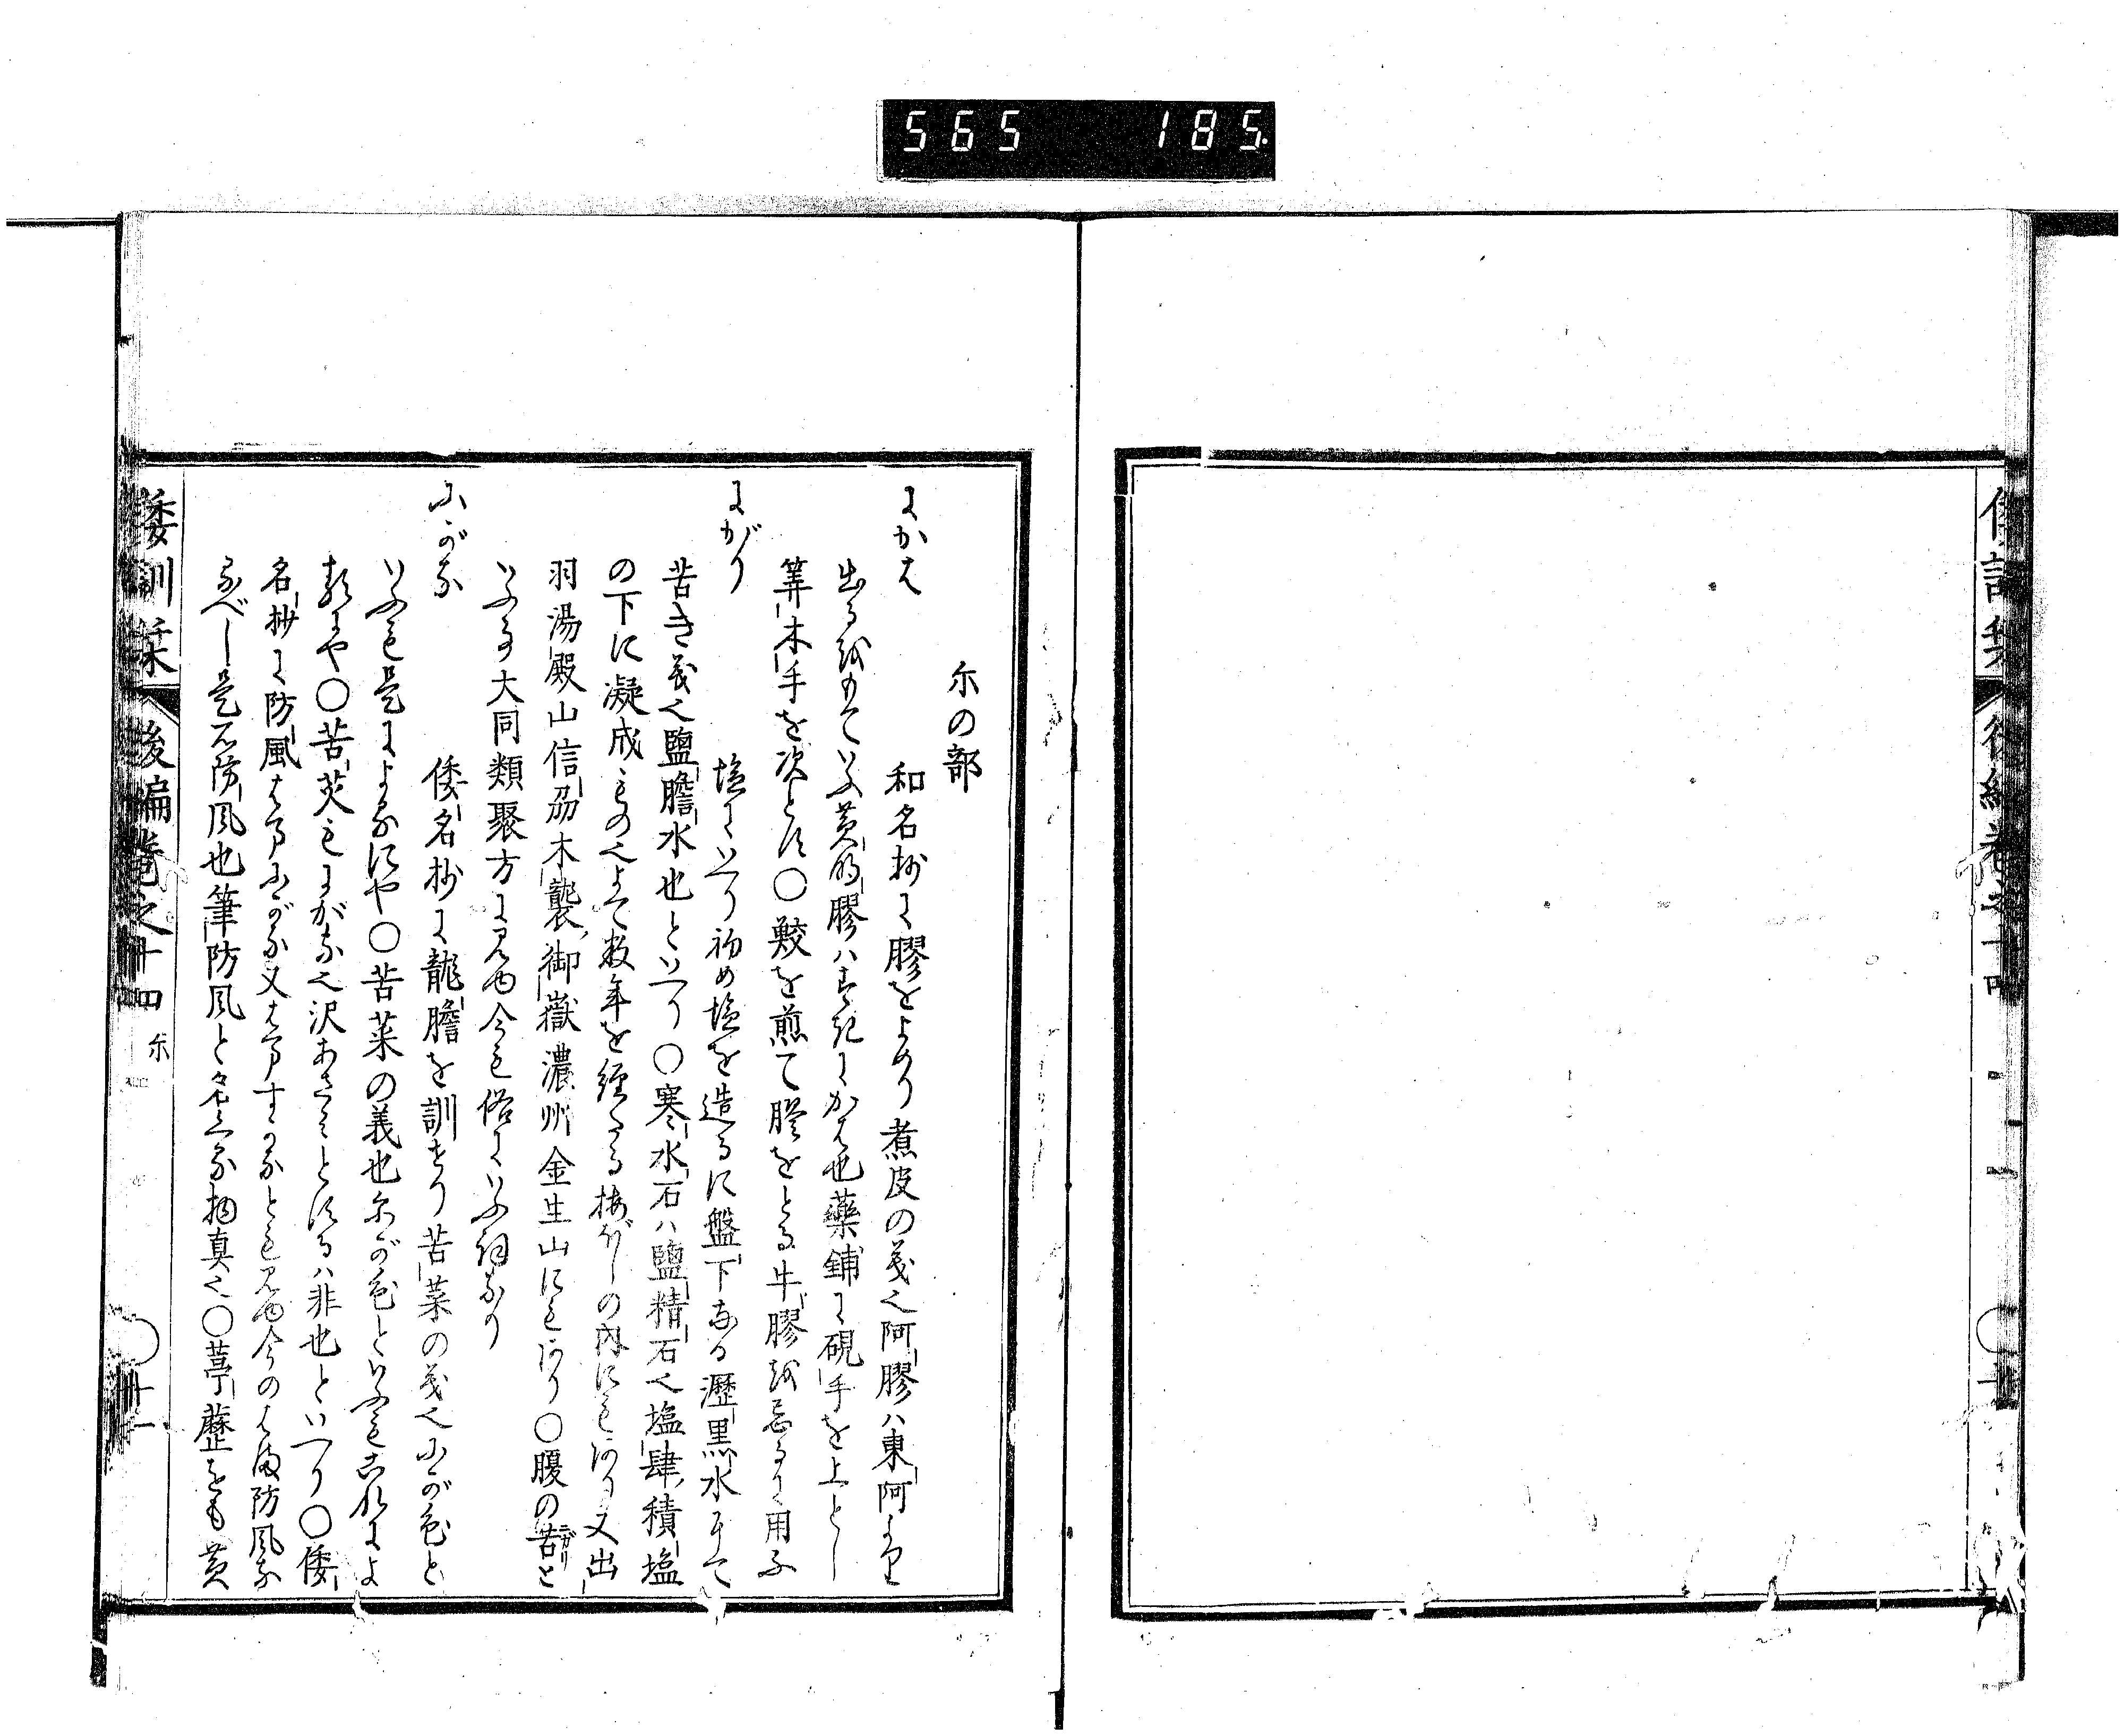 565 185.
倭訓栞 後編巻之十四
尓の部
にかは 和名抄に膠をよめり煮皮の義也阿膠ハ東阿より
出るをもていふ黄明膠ハすきにかは也藥鋪に硯手を上とし
箅木手を次とす〇鮫を煎て膠をとる牛膠を忌るに用ふ
にがり 塩にいへり初め塩を造るに盤下なる瀝黒水にて
苦き義也鹽膽水也といへり〇寒水石ハ鹽精石也塩肆積塩
の下に凝成もの也よて数年を經たる梅ぼしの内にもあり又出
羽湯殿山信刕木襲御嶽濃州金生山にもあり〇腹の苦と
いふ事大同類聚方に見ゆ今も俗にいふ詞なり
にがな 倭名抄に龍膽を訓せり苦菜の義也にが色と
いふも是によるにや〇苦菜の義也にが色といふも是によ
るにや〇苦芙もにがな也沢あざみとするハ非也といへり〇倭
名抄に防風はまにがな又はますかなとも見ゆ今のはま防風な
るべし是石防風也筆防風と名くる物真也〇葶藶をも黄
倭訓栞 後編巻之十四 尓 〇廿一